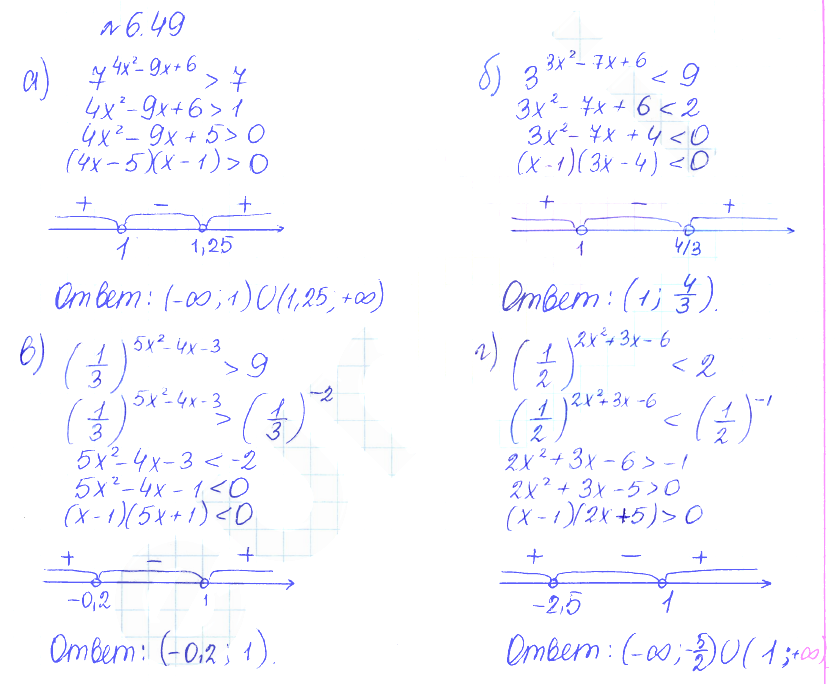 № 6.49
а) 7^(4x²-9x+6) > 7
4x²-9x+6>1
4x²-9x+5>0
(4x-5)(x-1)>0
+ - +
1 1,25
Ответ: (-∞;1)U(1,25,+∞)
б) 3^(3x²-7x+6) < 9
3x²-7x+6<2
3x²-7x+4<0
(x-1)(3x-4)<0
+ - +
1 4/3
Ответ: (1; 4/3).
в) (1/3)^(5x²-4x-3) > 9
(1/3)^(5x²-4x-3) > (1/3)^(-2)
5x²-4x-3<-2
5x²-4x-1<0
(x-1)(5x+1)<0
+ - +
-0,2 1
Ответ: (-0,2; 1).
г) (1/2)^(2x²+3x-6) < 2
(1/2)^(2x²+3x-6) < (1/2)^(-1)
2x²+3x-6>-1
2x²+3x-5>0
(x-1)(2x+5)>0
+ - +
-2,5 1
Ответ: (-∞;-5/2)U(1;+∞)